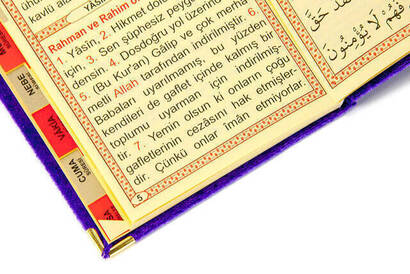 kavlü ala
YÂSÎN
Rahman ve Rahim o
1. Yâsîn, 2. Hikmet dolu
için, 3. Sen şüphesiz peyg
densin. 4. Dosdoğru yol üzerin
5. (Bu Kur'an) Gâlip ve çok merha
metli Allah tarafından indirilmiştir. 6.
Babaları uyarılmamış, bu yüzden
kendileri de gaflet içinde kalmış bir
toplumu uyarman için indirilmiş-
tir. 7. Yemin olsun ki onların çoğu
gafletlerinin cezâsını hak etmiyorlar.
dir. Çünkü onlar îmân etmiyorlar.
5
فَهُمْ لَا يُؤْمِنُونَ
NEBE
SÛRESİ
VAKIA
CUMA
SÛRESİ